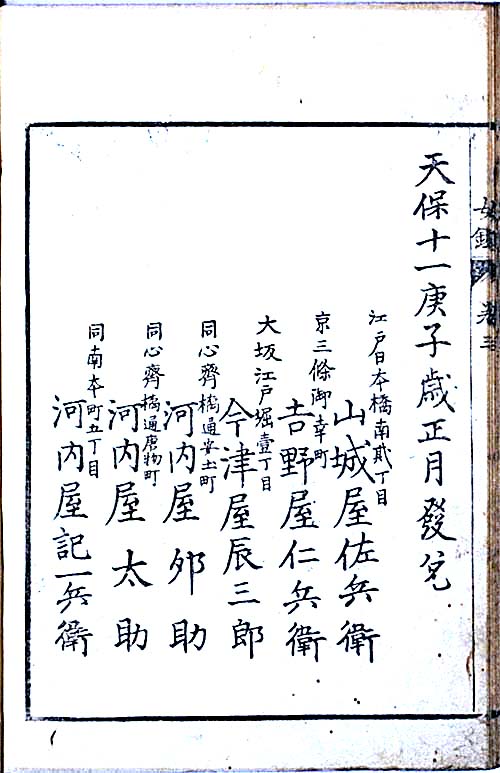 女鏡 卷三
天保十一庚子歳正月發兌
江戸日本橋南貮丁目
山城屋佐兵衛
京三條御幸町
吉野屋仁兵衛
大坂江戸堀壹丁目
今津屋辰三郎
同心齊橋通安土町
河内屋卯助
同心齊橋通唐物町
河内屋太助
同南本町五丁目
河内屋記一兵衛